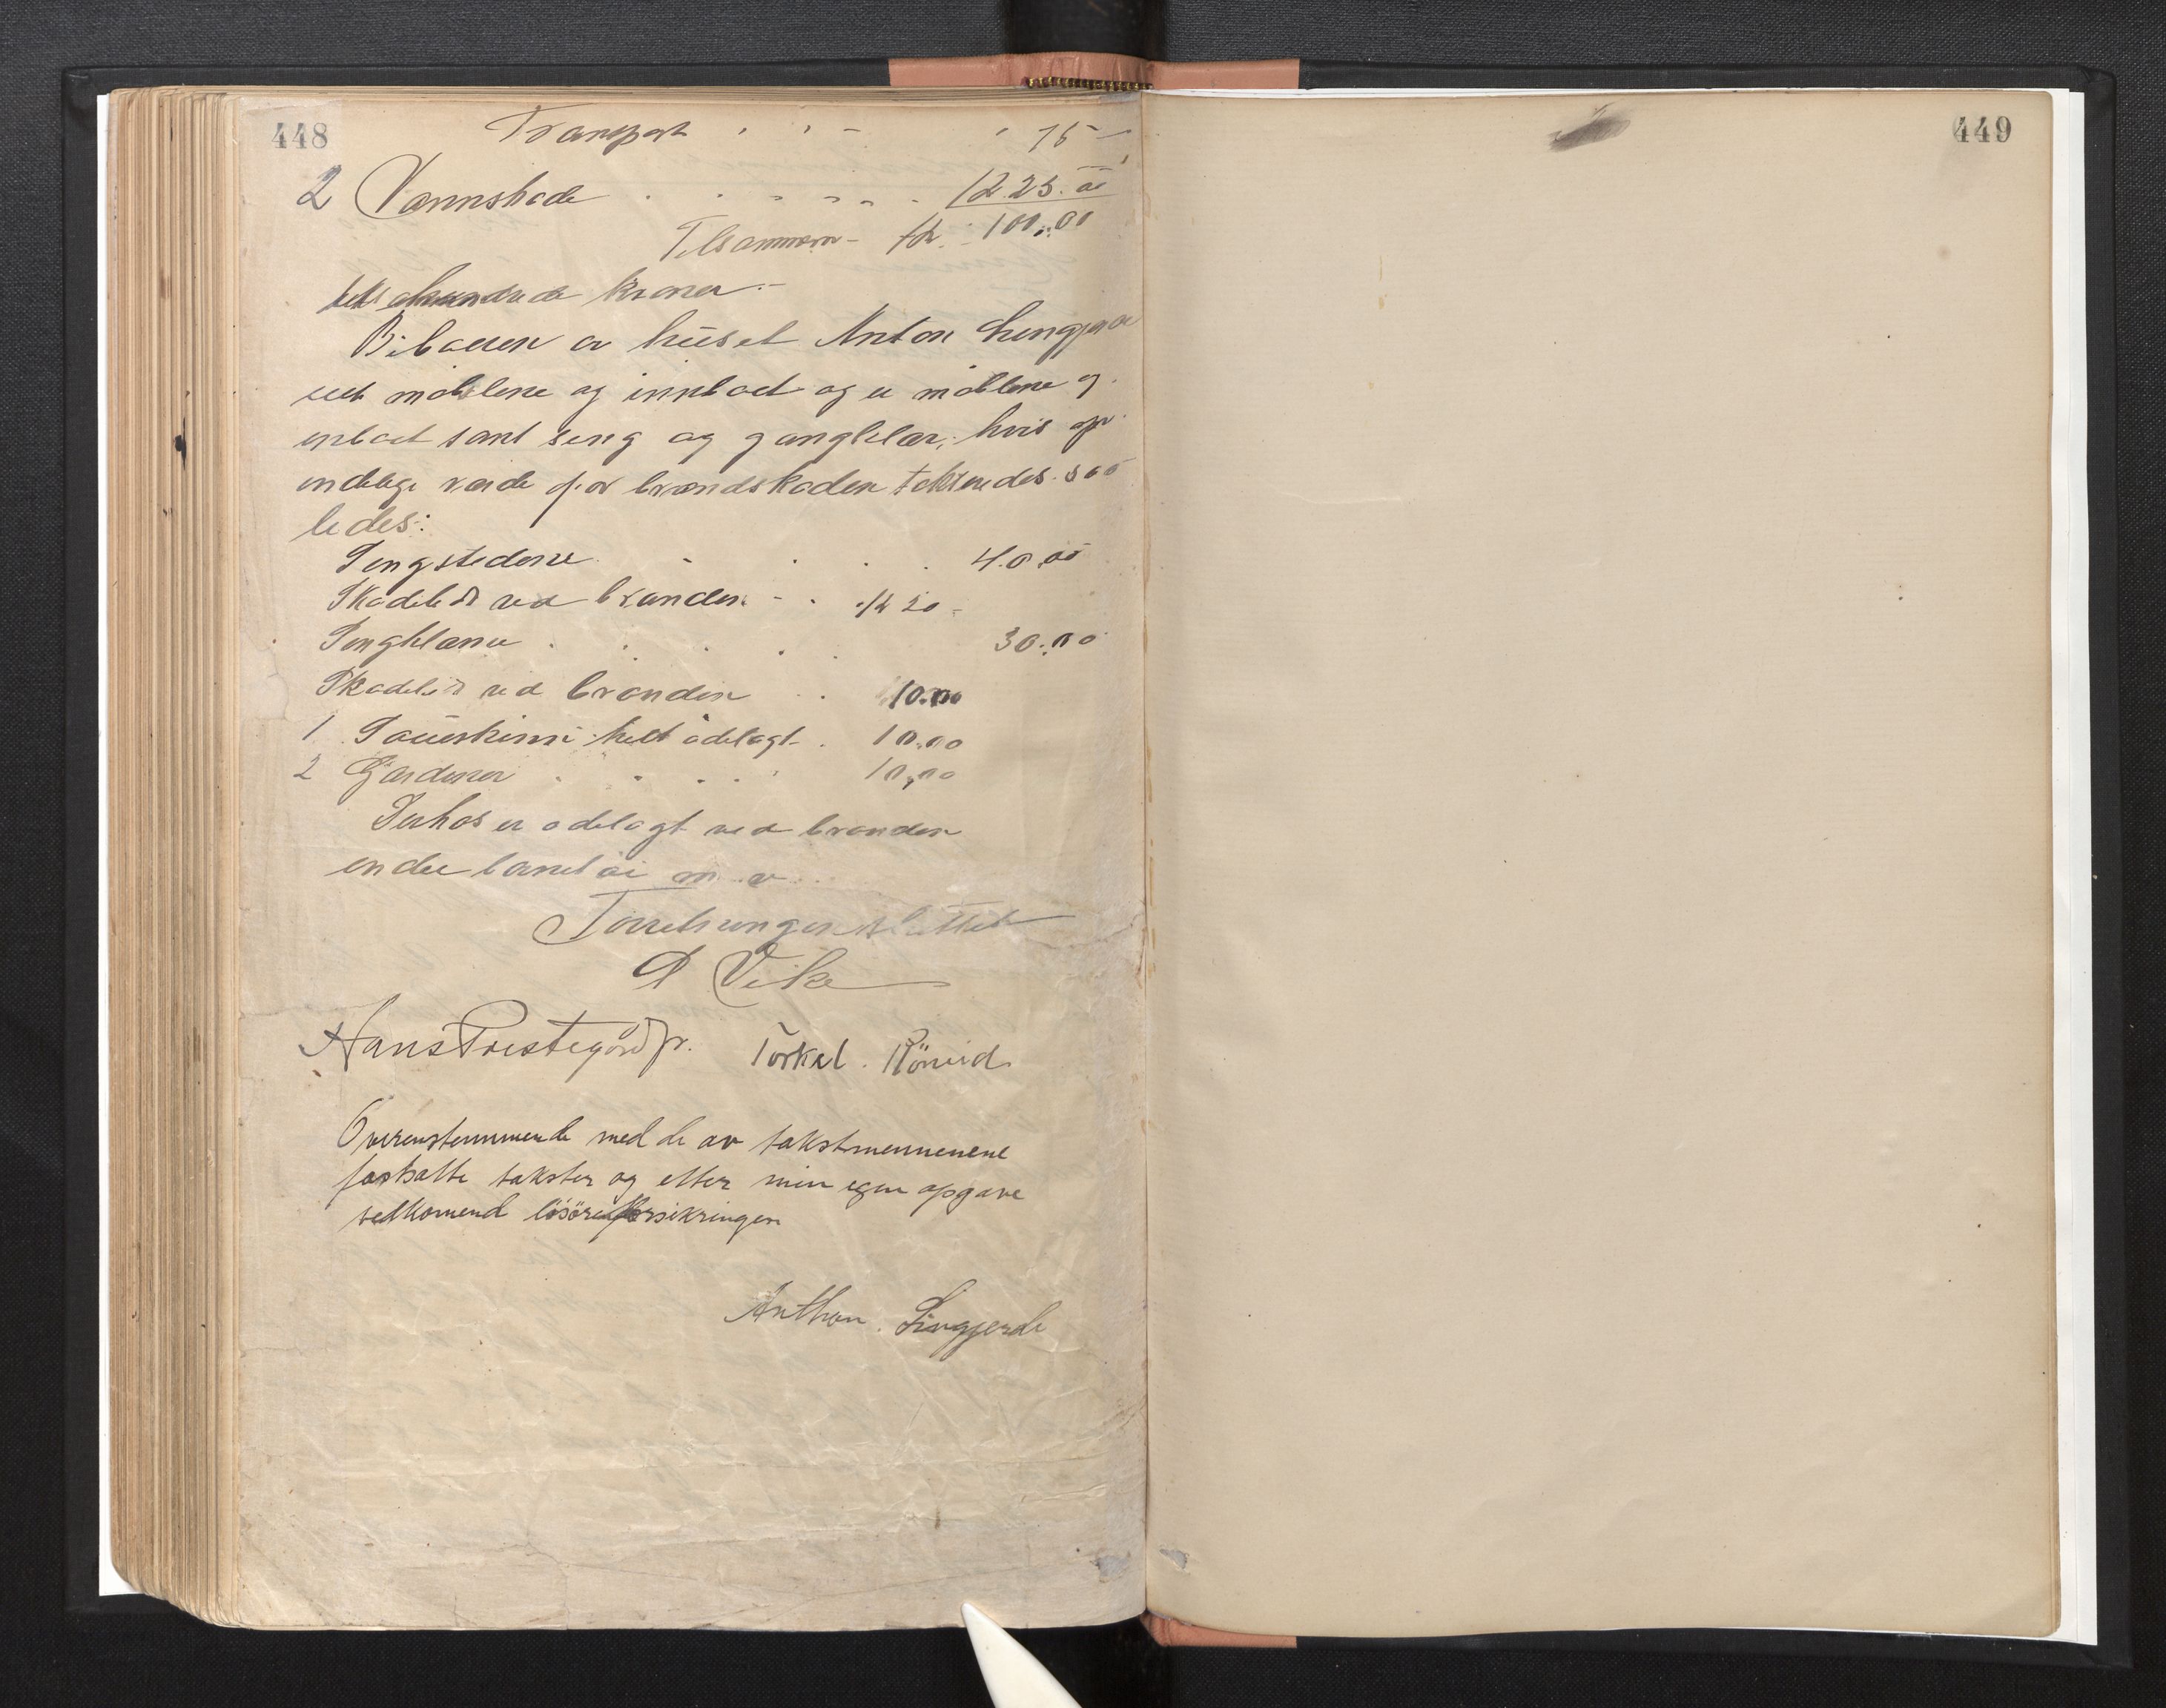 448
Transport 75 –
2 Vannskade kr 25.00
Tilsammen – kr. 100,00
hundrede kroner. –
Beboeren av huset Anton Lingjerde
møblene og innboet og er møblene og
inboet samt seng og gangklær, hvis op
indelige verde før brandskaden takseredes saa
ledes:
Sengstedene 40,00
Skadelidt ved branden – kr 20 –
Sengklærne 30,00
Skadelidt ved branden 10.00
1 Saueskinn helt ødelagt. 10.00
2 Gardener 10,00
Derhos er ødelagt ved branden
endel m. v.
Forretningen sluttet
Vik
Hans Prestegård jr. Torkel
Overenstemmende med de av takstmennenene
fastsatte takster og etter min egen opgave
vedkomend løsøreforsikringen
Anthon Lingjerde
449